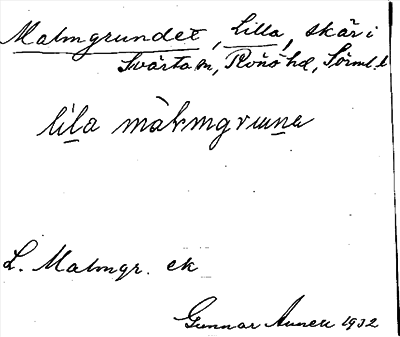 Malmgrundet, Lilla, skär i
Svärta sn, Rönö hd, Sörml. l.
lila màlmgruna
L. Malmgr. ek
Gunnar 1932